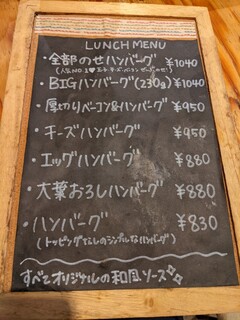 LUNCH MENU
・全部のせハンバーグ ¥1040
(人気NO.1♡エッグ・チーズ・ベーコン ぜんぶのせ!)
・BIGハンバーグ(230g) ¥1040
・厚切りベーコン&ハンバーグ ¥950
・チーズハンバーグ ¥950
・エッグハンバーグ ¥880
・大葉おろしハンバーグ ¥880
・ハンバーグ ¥830
(トッピングなしのシンプルなハンバーグ)
すべてオリジナルの和風ソース